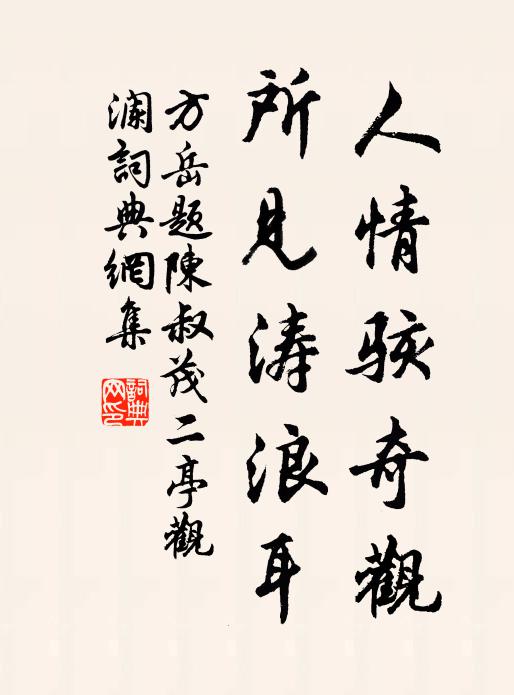 人情駭奇觀
所見涛浪耳
方岳题陳叔茂二亭觀
澜詞典網集
詞典
网印